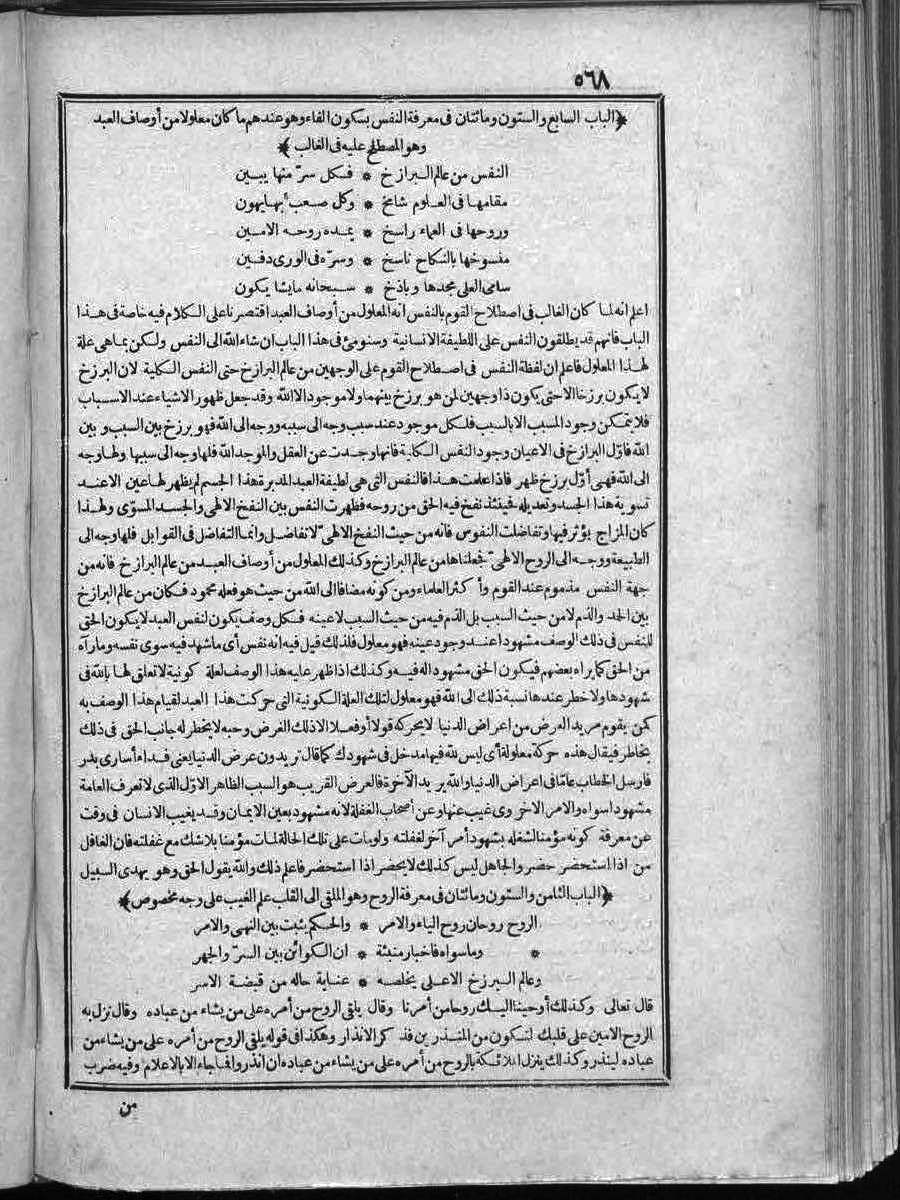 ٥٦٨
﴿الباب السابع والستون ومائتان فى معرفة النفس بسكون الفاء وهو عندهم ما كان معلولا من أوصاف العبد
وهو المصطلح عليه فى الغالب﴾
النفس من عالم البرازخ * فكل سرّ منها يبين
مقامها فى العلوم شامخ * وكل صعب بها يهون
وروحها فى العماء راسخ * يمده روحه الامين
منسوخها بالنكاح ناسخ * وسرّه فى الورى دفين
سامى العلى مجدها وباذخ * سبحانه ما يشا يكون
اعلم انه لما كان الغالب فى اصطلاح القوم بالنفس انه المعلول من أوصاف العبد اقتصرنا على الكلام فيه خاصة فى هذا
الباب فانهم قد يطلقون النفس على اللطيفة الانسانية وسنومئ فى هذا الباب ان شاء الله الى النفس ولكن بما هى علة
لهذا المعلول فاعلم ان لفظة النفس فى اصطلاح القوم على الوجهين من عالم البرازخ حتى النفس الكلية لان البرزخ
لا يكون برزخا الا حتى يكون ذا وجهين لمن هو برزخ بينهما ولا موجود الا الله وقد جعل ظهور الاشياء عند الاسباب
فلا يتمكن وجود المسبب الا بالسبب فلكل موجود عند سبب وجه الى سببه ووجه الى الله فهو برزخ بين السبب وبين
الله فاوّل البرازخ فى الاعيان وجود النفس الكلية فانها وجدت عن العقل والموجد الله فلها وجه الى سببها ولها وجه
الى الله فهى أوّل برزخ ظهر فاذا علمت هذا فالنفس التى هى لطيفة العبد المدبرة هذا الجسم لم يظهر لها عين الا عند
تسوية هذا الجسد وتعديله فحينئذ نفخ فيه الحق من روحه فظهرت النفس بين النفخ الالهى والجسد المسوّى ولهذا
كان المزاج يؤثر فيها وتفاضلت النفوس فانه من حيث النفخ الالهىّ لا تفاضل وانما التفاضل فى القوابل فلها وجه الى
الطبيعة ووجه الى الروح الالهىّ فجعلناها من عالم البرازخ وكذلك المعلول من أوصاف العبد من عالم البرازخ فانه من
جهة النفس مذموم عند القوم وأكثر العلماء ومن كونه مضافا الى الله من حيث هو فعله محمود فكان من عالم البرازخ
بين الحمد والذم لا من حيث السبب بل الذم فيه من حيث السبب لا عينه فكل وصف يكون لنفس العبد لا يكون الحق
للنفس فى ذلك الوصف مشهودا عند وجود عينه فهو معلول فلذلك قيل فيه انه نفس أى ما شهد فيه سوى نفسه وما رآه
من الحق كما يراه بعضهم فيكون الحق مشهودا له فيه وكذلك اذا ظهر عليه هذا الوصف لعلة كونية لا تعلق لها بالله فى
شهودها ولا خطر عندها نسبة ذلك الى الله فهو معلول لتلك العلة الكونية التى حركت هذا العبد لقيام هذا الوصف به
كمن يقوم مريد العرض من اعراض الدنيا لا يحركه قولا أو فعلا الا ذلك الغرض وحبه لا يخطر له جانب الحق فى ذلك
بخاطر فيقال هذه حركة معلولة أى ليس لله فيها مدخل فى شهودك كما قال تريدون عرض الدنيا يعنى فداء أسارى بدر
فارسل الخطاب عامّا فى اعراض الدنيا والله يريد الآخرة فالعرض القريب هو السبب الظاهر الاوّل الذى لا تعرف العامة
مشهودا سواه والامر الاخروى غيب عنها وعن أصحاب الغفلة لانه مشهود بعين الايمان وقد يغيب الانسان فى وقت
عن معرفة كونه مؤمنا لشغله بشهود أمر آخر لغفلته ولو مات على تلك الحالة لمات مؤمنا بلا شك مع غفلته فان الغافل
من اذا استحضر حضر والجاهل ليس كذلك لا يحضر اذا استحضر فاعلم ذلك والله يقول الحق وهو يهدى السبيل
﴿الباب الثامن والستون ومائتان فى معرفة الروح وهو الملقى الى القلب علم الغيب على وجه مخصوص﴾
الروح روحان روح الياء والامر * والحكم يثبت بين النهى والامر
* وما سواه فاخبار منبئة * ان الكوائن بين السرّ والجهر
وعالم البرزخ الاعلى يخلصه * عناية حاله من قبضة الاسر
قال تعالى وكذلك أوحينا اليك روحا من أمرنا وقال يلقى الروح من أمره على من يشاء من عباده وقال نزل به
الروح الامين على قلبك لتكون من المنذرين فذكر الانذار وهكذا فى قوله يلقى الروح من أمره على من يشاء من
عباده لينذر وكذلك ينزل الملائكة بالروح من أمره على من يشاء من عباده ان انذروا فما جاء الا بالاعلام وفيه ضرب
من